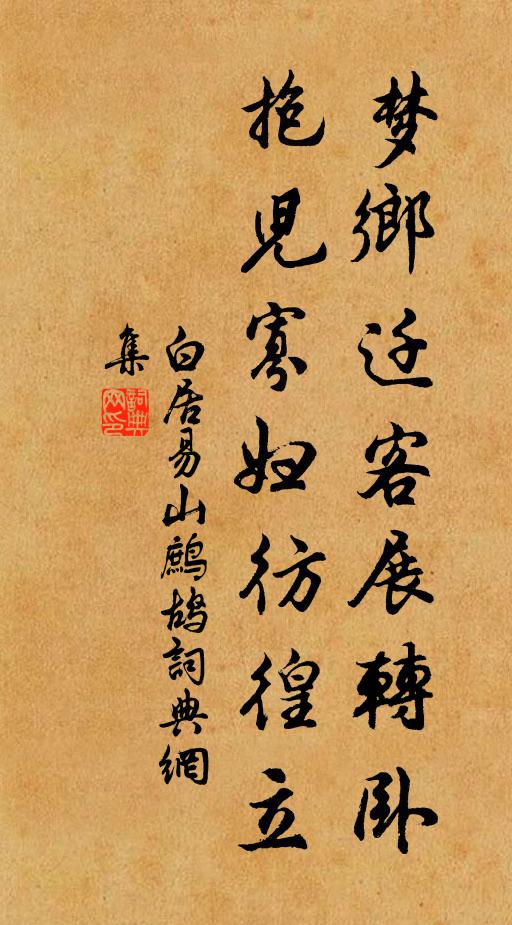 梦鄉迁客展轉卧
抱兒寡婦彷徨立
白居易山鷓鴣詞典網
集
詞典網印